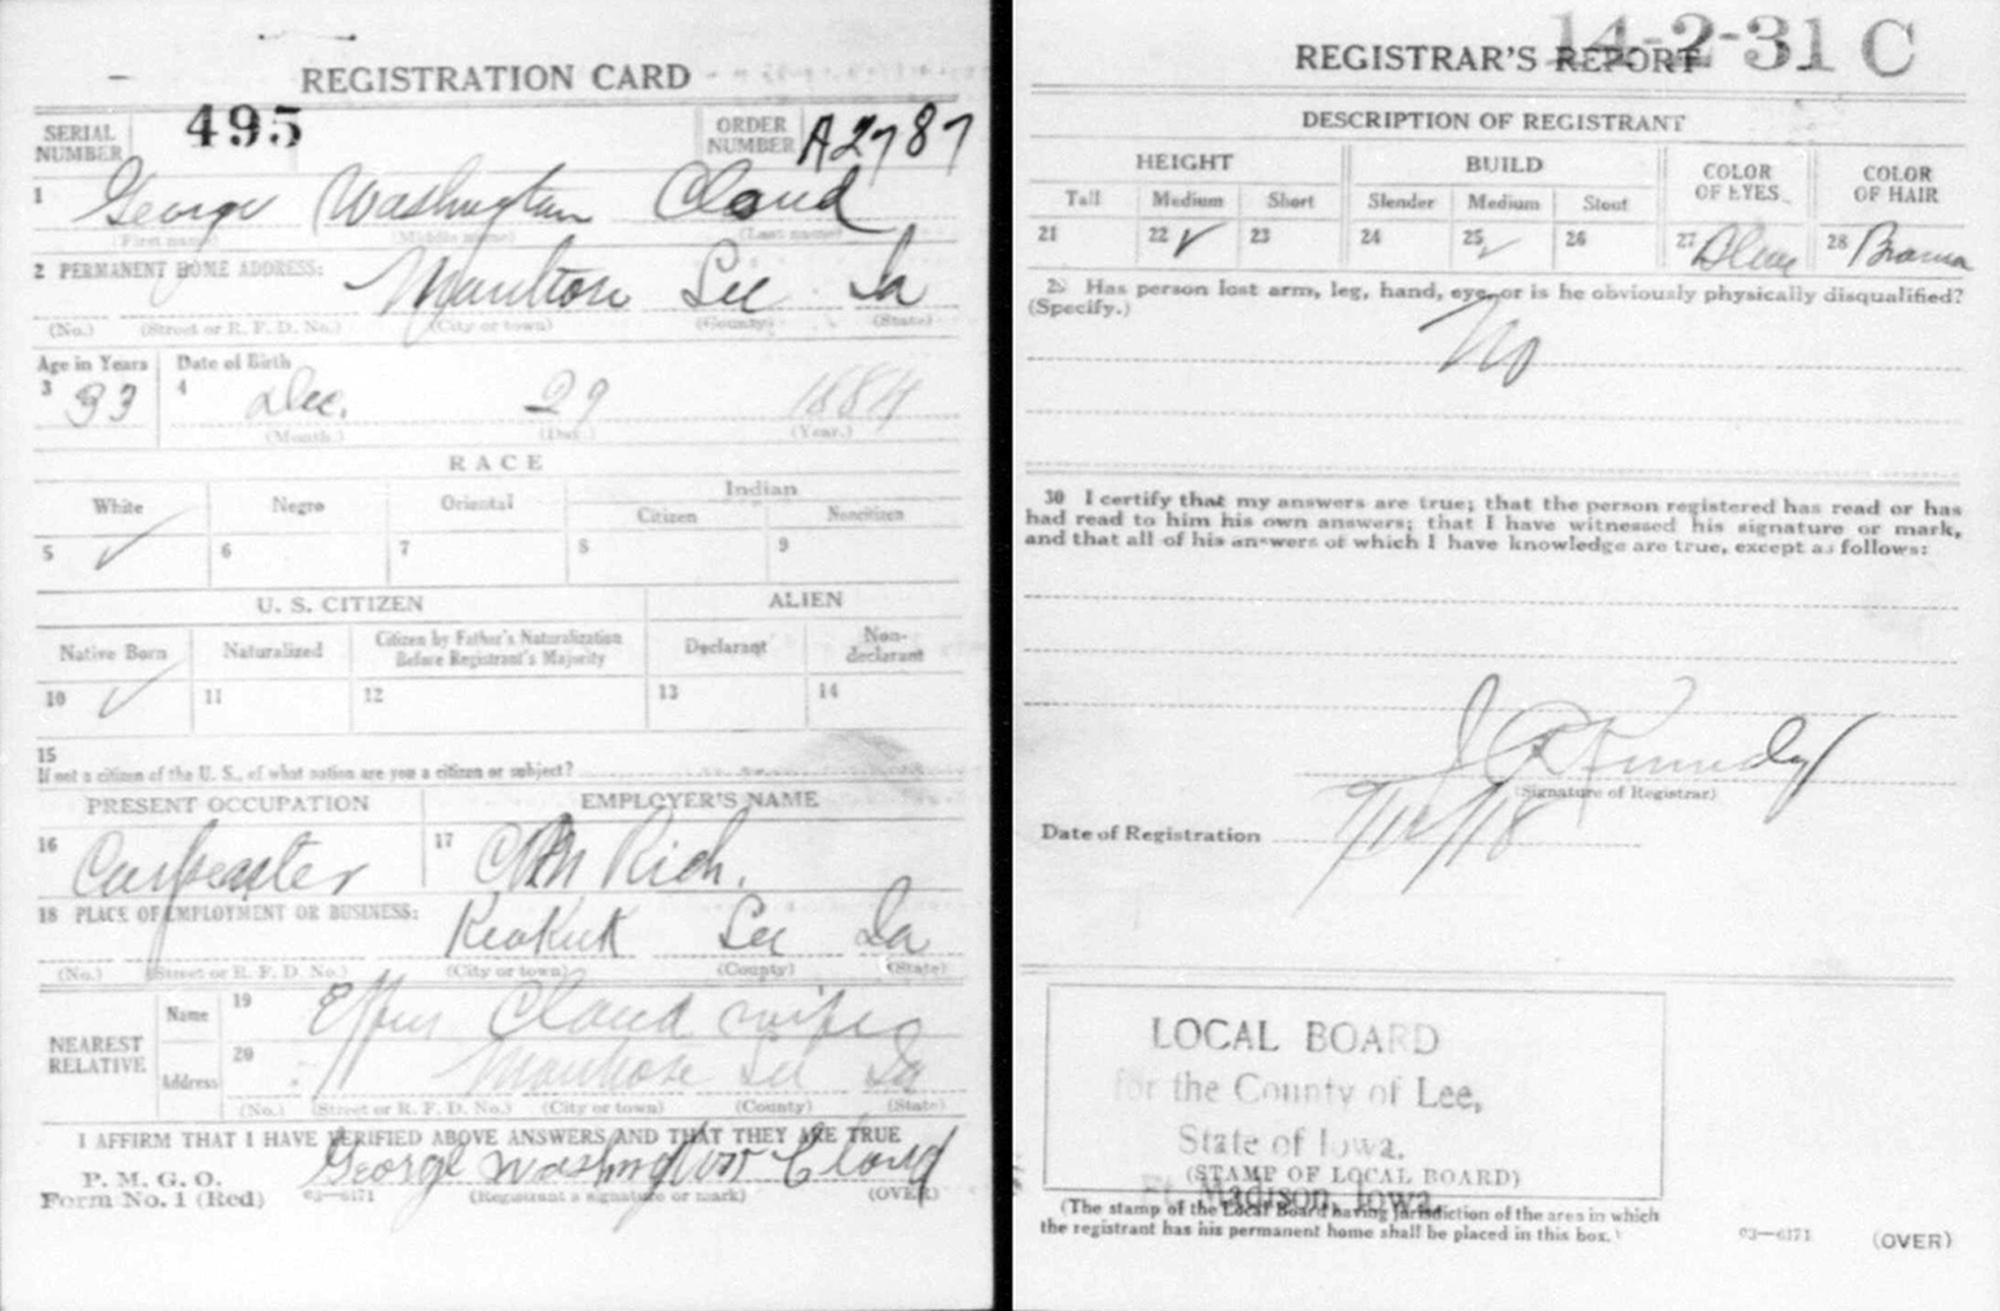 REGISTRATION CARD
SERIAL NUMBER 495 ORDER NUMBER A2787
1 George Washington Cloud
(First name) (Middle name) (Last name)
2 PERMANENT HOME ADDRESS: Montrose Lee Ia
(No.) (Street or R. F. D. No.) (City or town) (County) (State)
Age in Years Date of Birth
3 33 4 Dec. 29 1884
(Month.) (Day.) (Year.)
RACE
White Negro Oriental Indian
Citizen Noncitizen
5 ✓ 6 7 8 9
U. S. CITIZEN ALIEN
Native Born Naturalized Citizen by Father's Naturalization Before Registrant's Majority Declarant Non-declarant
10 ✓ 11 12 13 14
15
If not a citizen of the U. S., of what nation are you a citizen or subject?
PRESENT OCCUPATION EMPLOYER'S NAME
16 Carpenter 17 Rich.
18 PLACE OF EMPLOYMENT OR BUSINESS: Keokuk Lee Ia
(No.) (Street or R. F. D. No.) (City or town) (County) (State)
NEAREST RELATIVE Name 19 Cloud wife
Address 20 Montrose Lee Ia
(No.) (Street or R. F. D. No.) (City or town) (County) (State)
I AFFIRM THAT I HAVE VERIFIED ABOVE ANSWERS AND THAT THEY ARE TRUE
P. M. G. O.
Form No. 1 (Red) 03—6171 George Washington Cloud
(Registrant's signature or mark) (OVER)
14-2-31 C
REGISTRAR'S REPORT
DESCRIPTION OF REGISTRANT
HEIGHT BUILD COLOR OF EYES COLOR OF HAIR
Tall Medium Short Slender Medium Stout
21 22 ✓ 23 24 25 ✓ 26 27 Blue 28 Brown
29 Has person lost arm, leg, hand, eye, or is he obviously physically disqualified?
(Specify.)
No
30 I certify that my answers are true; that the person registered has read or has
had read to him his own answers; that I have witnessed his signature or mark,
and that all of his answers of which I have knowledge are true, except as follows:
Kennedy
(Signature of Registrar)
Date of Registration 9/12/18
LOCAL BOARD
for the County of Lee,
State of Iowa.
(STAMP OF LOCAL BOARD)
Ft. Madison, Iowa.
(The stamp of the Local Board having jurisdiction of the area in which
the registrant has his permanent home shall be placed in this box.)
03—6171 (OVER)